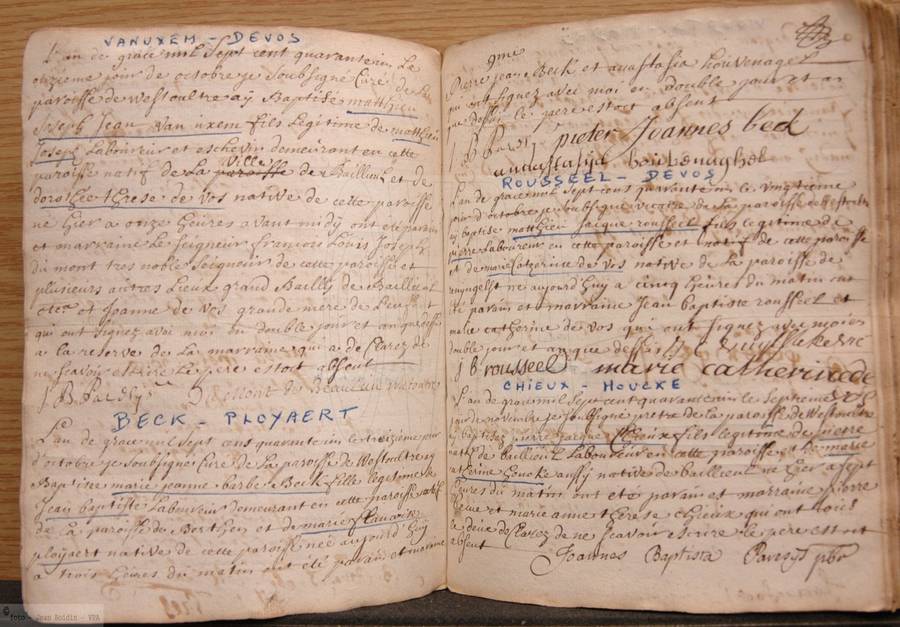 VANUXEM - DEVOS
L'an de grace mil Sept cent quarante un Le
onzieme jour de octobre je Soubsigné Curé de La
paroisse de Westoultre aÿ Baptisé matthieu
Joseph Jean Van uxem fils Legitime de matthieu
Joseph Laboureur et eschevin demeurant en cette
paroisse natif de La paroisse ville de Bailleul et de
dorothée therese de vos native de cette paroisse
né hier a onze heures avant midy ont eté parain
et marraine Le Seigneur francois Louis Joseph
du mont tres noble Seigneur de cette paroisse et
plusieurs autres Lieux grand Bailly de Bailleul
et Joanne de vos grande mere de
qui ont signez avec moi en double jour et an que dessus
a la reserve de La marraine qui a declarez de
ne scavoir escrire Le pere estoit absent
J B
BECK - PLOYAERT
L'an de grace mil Sept cens quarante un le troizieme jour
d'octobre je Soubsigné Curé de La paroisse de Westoultre aÿ
Baptisé marie jeanne barbe Beck fille legitime de
Jean baptiste Laboureur demeurant en cette paroisse natif
de La paroisse du Berthen et de marie
ployaert native de cette paroisse née aujourd'huy
a trois heures du matin ont eté parain et marraine
9me
Pierre jean Beck et anastasia houvenagel
qui ont signez avec moi en double jour et an
que dessus le pere estoit absent
J B pieter Joannes beck
ROUSSEEL - DEVOS
L'an de grace mil sept cens quarante un le vingtieme
jour d'octobre je soubsigné vicaire de La paroisse de Westoultre
aÿ baptisé matthieu jacque rousseel fils legitime de
pierre Laboureur en cette paroisse et natif de cette paroisse
et de marie Catherine de vos native de La paroisse de
né aujourd'huy a cincq heures du matin ont
eté parain et marraine Jean baptiste rousseel et
marie catherine de vos qui ont signez avec moi en
double jour et an que dessus
J B rousseel marie catherine de
vos
CHIEUX - HOUCKE
L'an de grace mil sept cent quarante un le septieme
jour de novembre je soubsigné pretre de La paroisse de Westoultre
aÿ baptisez pierre jacque Chieux fils legitime de pierre
natif de bailleul Laboureur en cette paroisse et de marie
aussy native de bailleul né hier a sept
heures du matin ont eté parain et marraine pierre
et marie anne therese Chieux qui ont tous
Le deux declarez de ne scavoir escrire le pere estoit
absent
Joannes Baptista pbr
© foto - Jean Boidin - VPA